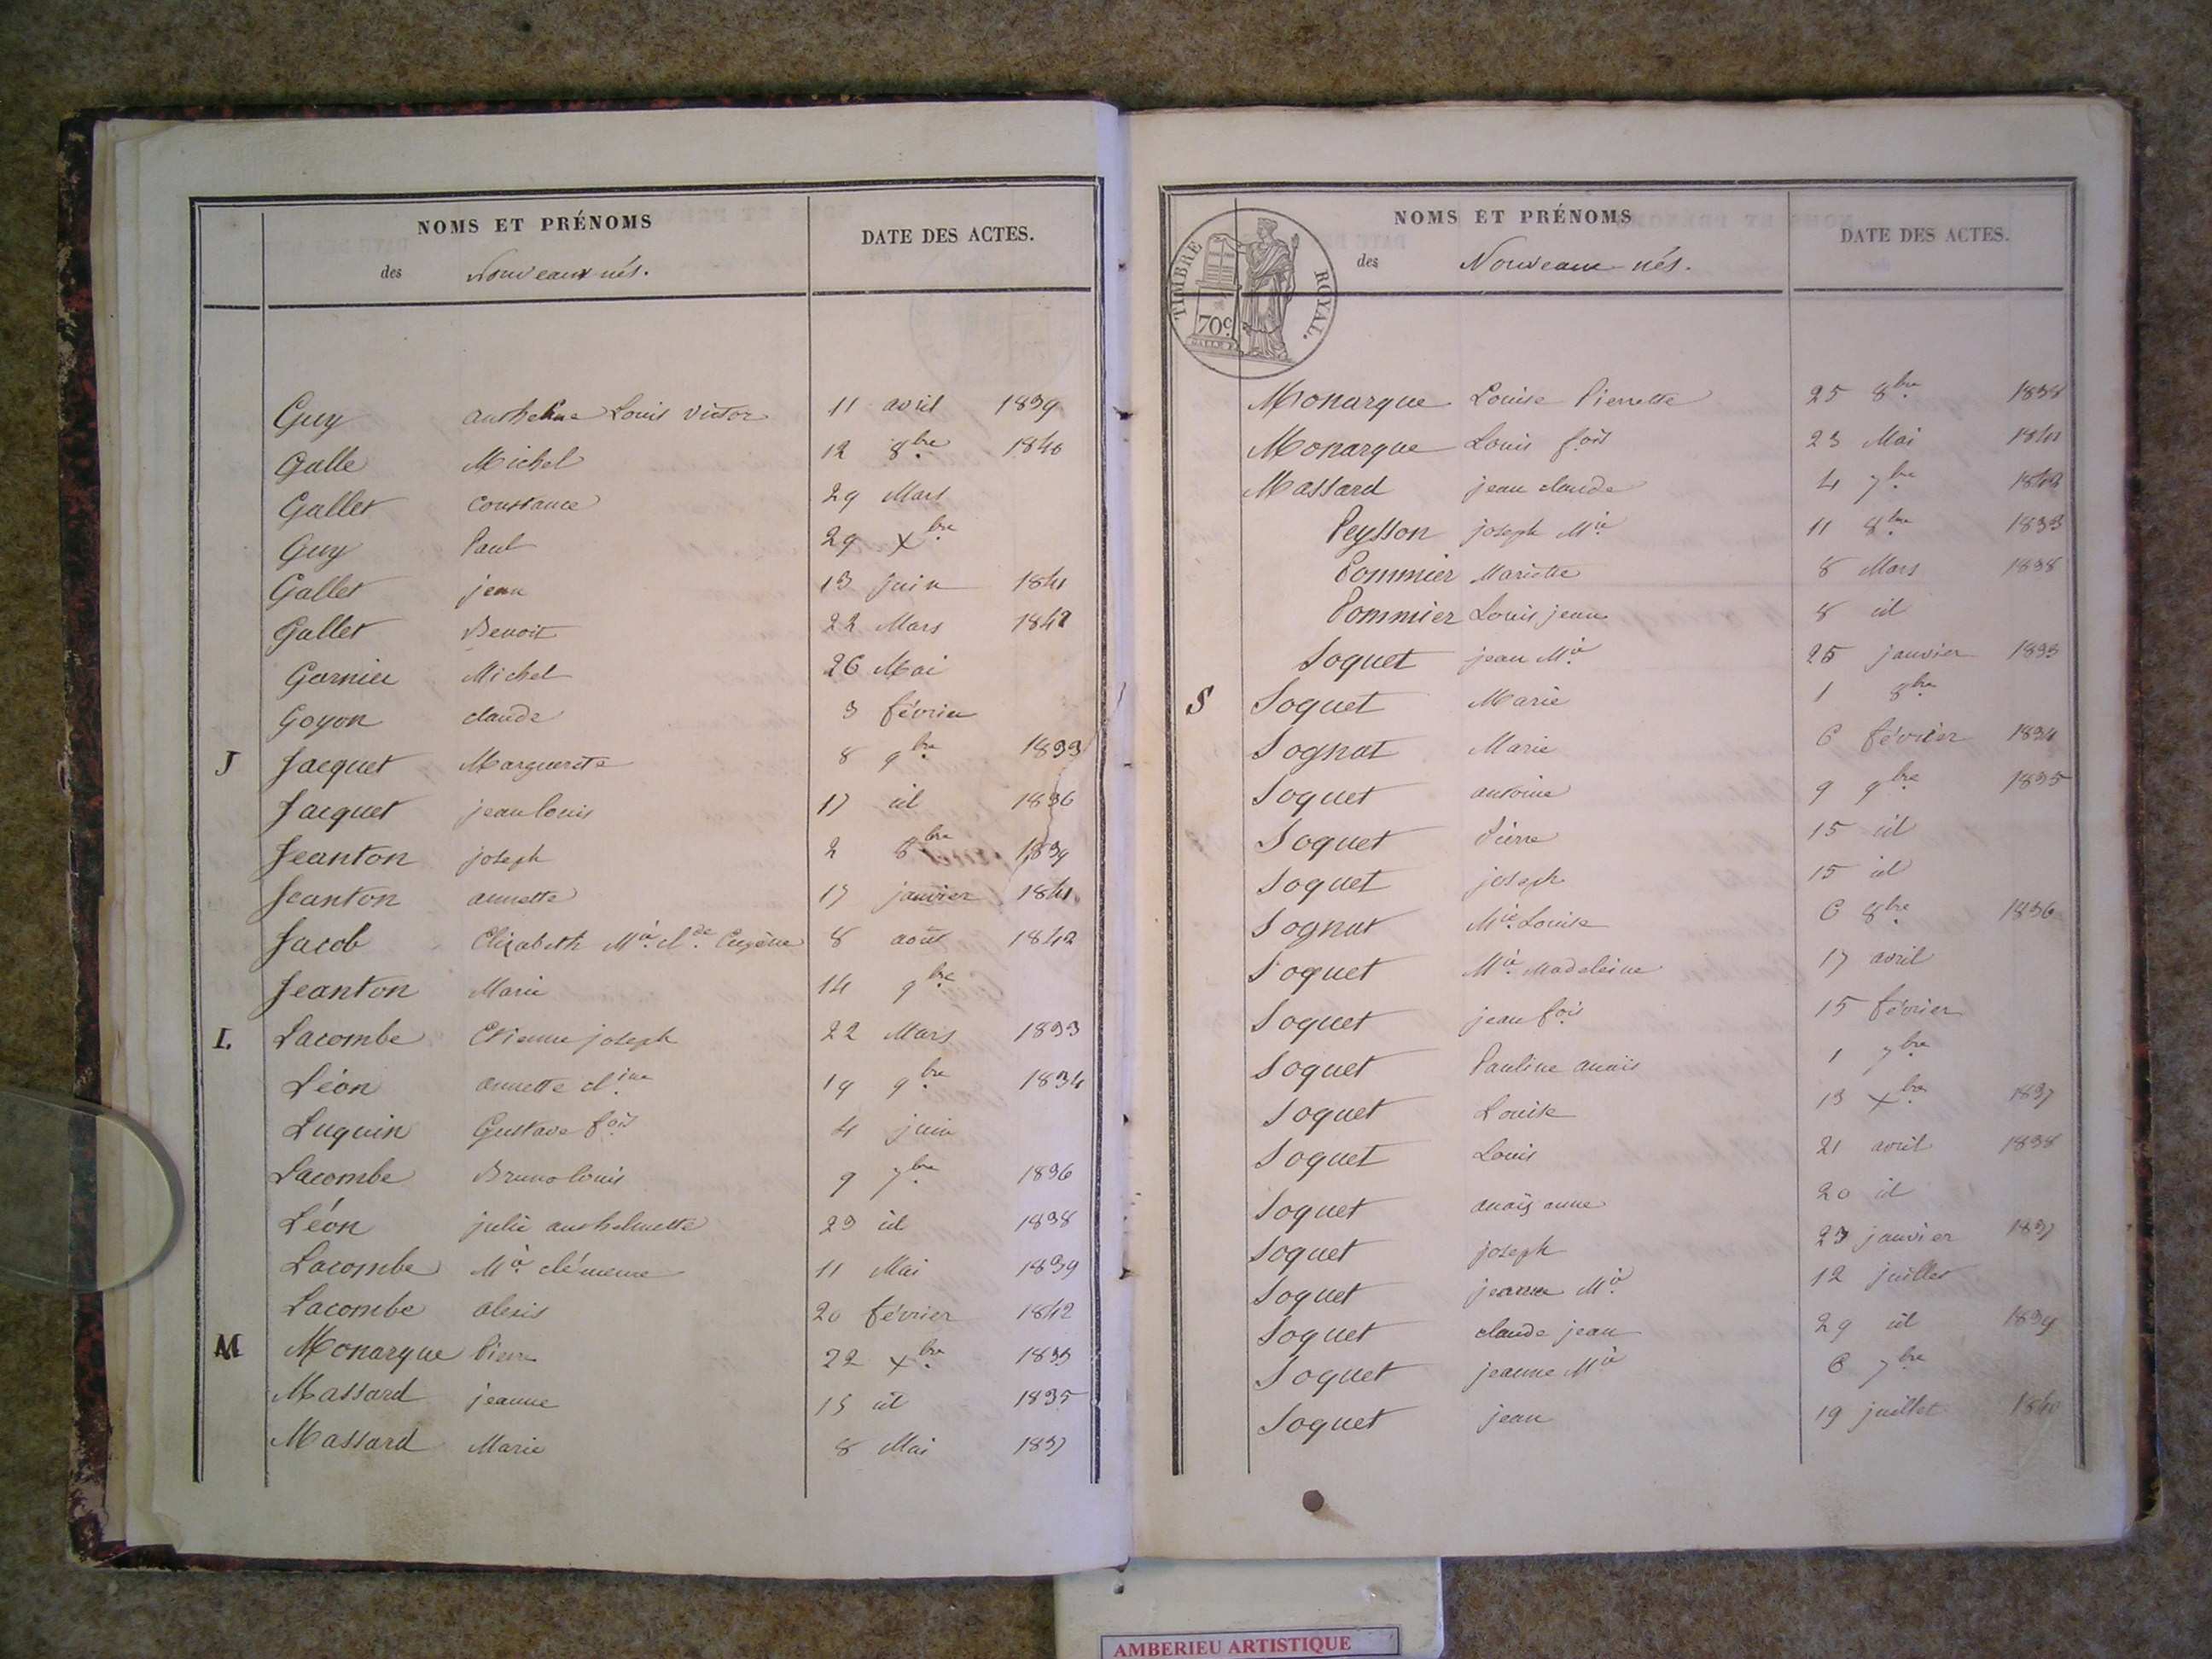 NOMS ET PRÉNOMS
des Nouveaux nés.
DATE DES ACTES.
Guy anthelme Louis victor 11 avril 1839
Galle Michel 12 8bre 1840
Gallet Constance 29 Mars
Guy Paul 29 Xbre
Gallet jean 13 juin 1841
Gallet Benoit 22 Mars 1842
Garnier Michel 26 Mai
Goyon claude 3 février
J Jacquet Marguerite 8 9bre 1833
Jacquet jean louis 17 id 1836
Jeanton joseph 2 8bre 1839
Jeanton annette 17 janvier 1841
Jacob Elizabeth Mie Cl.de Eugène 8 août 1842
Jeanton Marie 14 9bre
L Lacombe Etienne joseph 22 Mars 1833
Léon annette cl.ine 19 9bre 1834
Luquin Gustave fois 4 juin
Lacombe Bruno louis 9 7bre 1836
Léon julie anthelmette 23 id 1838
Lacombe Mie clémence 11 Mai 1839
Lacombe alexis 20 février 1842
M Monarque Pierre 22 Xbre 1833
Massard jeanne 15 id 1835
Massard Marie 8 Mai 1837
TIMBRE ROYAL.
70c
NOMS ET PRÉNOMS
des Nouveaux-nés.
DATE DES ACTES.
Monarque Louise Pierrette 25 8bre 1838
Monarque Louis fois 23 Mai 1841
Massard jean claude 4 7bre 1842
Peysson joseph Mie 11 8bre 1833
Pommier Mariette 8 Mars 1838
Pommier Louis jean 8 id
Soquet jean Mie 25 janvier 1833
S Soquet Marie 1 8bre
Sognat Marie 6 février 1834
Soquet antoine 9 9bre 1835
Soquet Pierre 15 id
Soquet joseph 15 id
Sognat Mie Louise 6 8bre 1836
Soquet Mie Madeleine 17 avril
Soquet jean fois 15 février
Soquet Pauline anaïs 1 7bre
Soquet Louise 13 Xbre 1837
Soquet Louis 21 avril 1838
Soquet anaïs anne 20 id
Soquet joseph 23 janvier 1837
Soquet jeanne Mie 12 juillet
Soquet claude jean 29 id 1839
Soquet jeanne Mie 6 7bre
Soquet jean 19 juillet 1840
AMBERIEU ARTISTIQUE